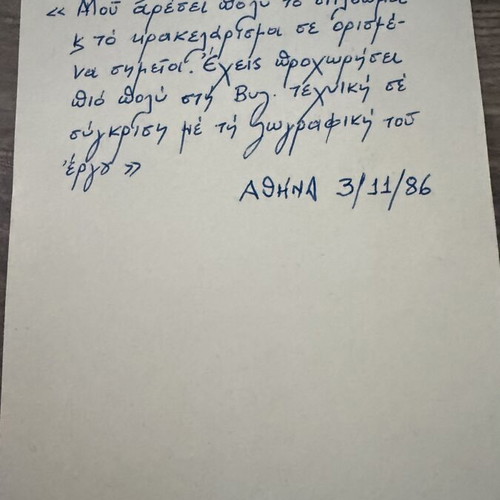 « Μοῦ ἀρέσει πολύ τό
ϗ τό κρακελάρισμα σέ ὁρισμέ-
να σημεῖα. Ἔχεις προχωρήσει
πιό πολύ στή Βυζ. τεχνική σέ
σύγκριση μέ τή ζωγραφική τοῦ
ἔργου »
ΑΘΗΝΑ 3/11/86